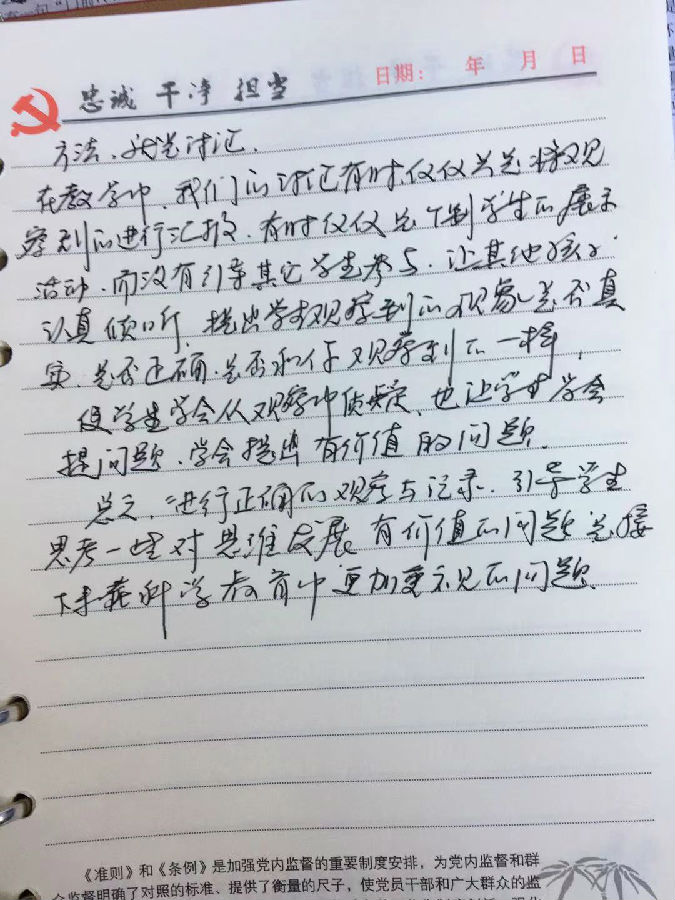 忠诚 干净 担当
日期: 年 月 日
方法、就是讨论.
在教学中,我们的讨论有时仅仅只是将观
察到的进行汇报,有时仅仅是个别学生的展示
活动,而没有引导其它学生参与,让其他孩子
认真倾听,提出学生观察到的现象是否真
实,是否正确,是否和你观察到的一样,
使学生学会从观察中质疑,也让学生学会
提问题,学会提出有价值的问题.
总之,进行正确的观察与记录,引导学生
思考一些对思维发展有价值的问题是接
下来在科学教育中更加重视的问题.
《准则》和《条例》是加强党内监督的重要制度安排,为党内监督和群
众监督明确了对照的标准、提供了衡量的尺子,使党员干部和广大群众的监